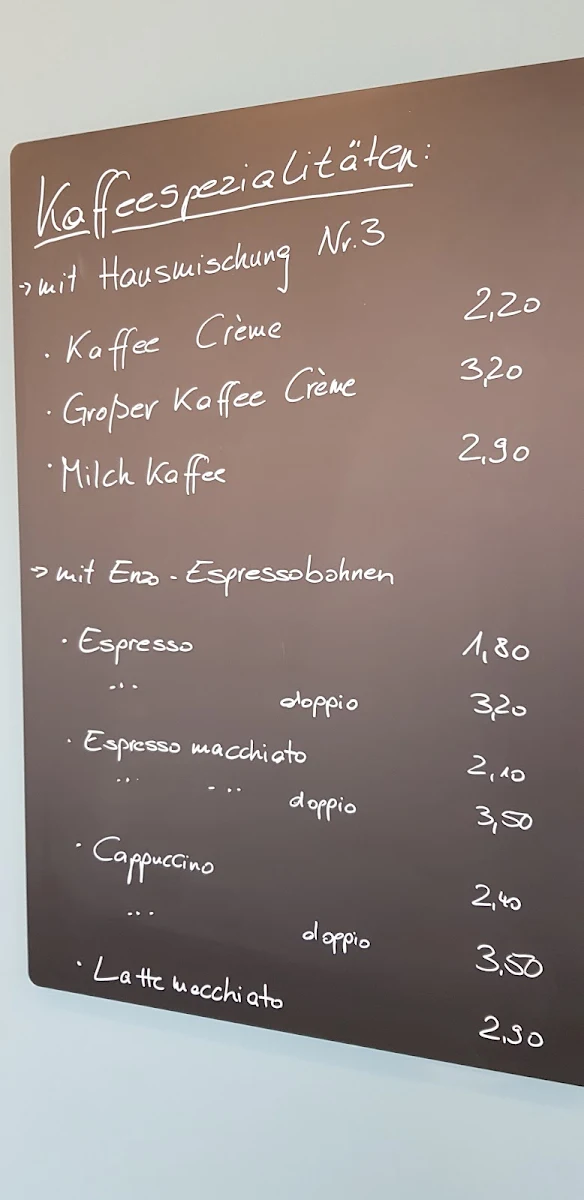 Kaffeespezialitäten:
→ mit Hausmischung Nr. 3
· Kaffee Crème 2,20
· Großer Kaffee Crème 3,20
· Milch Kaffee 2,90
→ mit Enzo - Espressobohnen
· Espresso 1,80
... doppio 3,20
· Espresso macchiato 2,10
... ... doppio 3,50
· Cappuccino 2,40
... doppio 3,50
· Latte macchiato 2,90